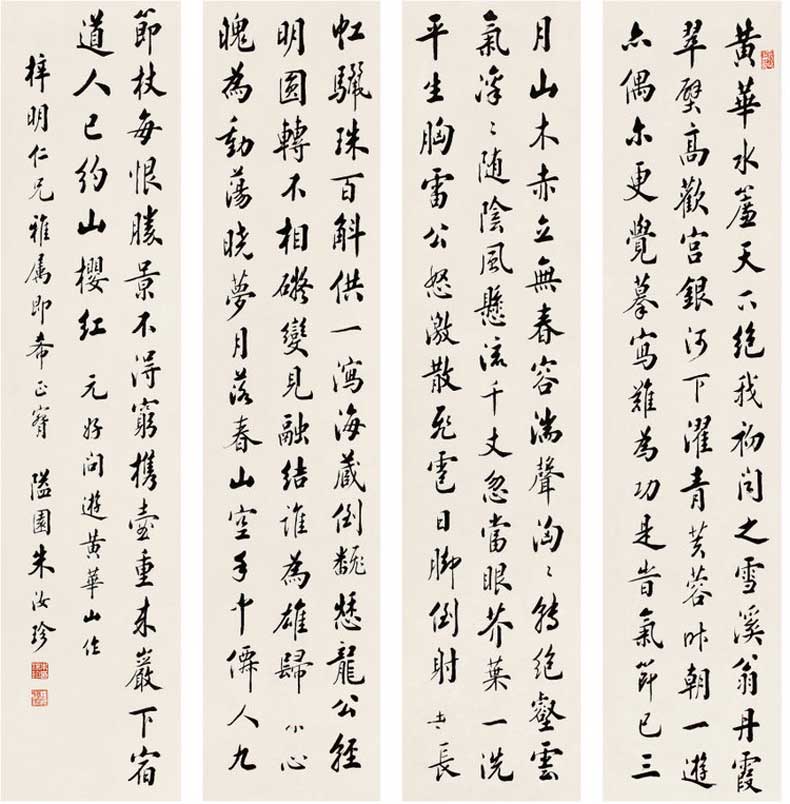 黃華水簾天下絕我初聞之雪溪翁丹霞
翠壁高歡宮銀河下濯青芙蓉昨朝一遊
亦偶尔更覺摹寫難為功是旹氣節已三
月山木赤立無春容湍聲洶〻轉絕壑雲
氣凛〻隨陰風懸流千丈忽當眼芥蔕一洗
平生胸雷公怒激散飛雹日脚倒射垂長
虹驪珠百斛供一瀉海藏倒翻愁龍公輕
明圓轉不相礙變見融結誰為雄歸來心
魄為動蕩曉夢月落春山空手中僊人九
節杖每恨勝景不得窮攜壺重來巖下宿
道人已約山櫻紅 元好問遊黃華山作
梓明仁兄雅属即希正 隘園朱汝珍